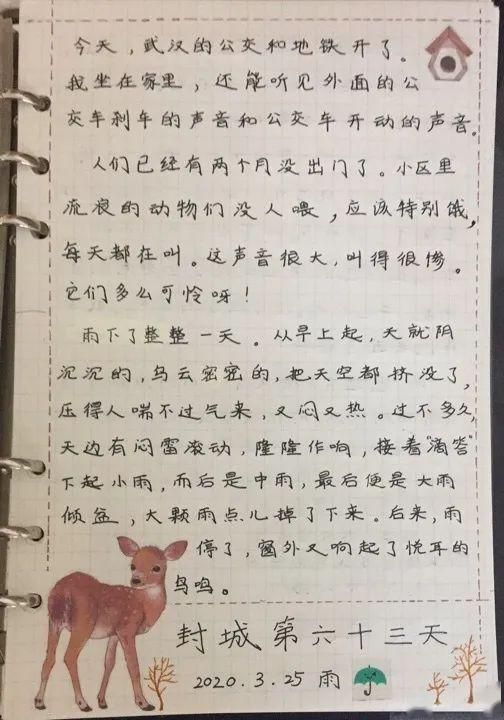 今天，武汉的公交和地铁开了。
我坐在家里，还能听见外面的公
交车刹车的声音和公交车开动的声音。
人们已经有两个月没出门了。小区里
流浪的动物们没人喂，应该特别饿，
每天都在叫。这声音很大，叫得很惨。
它们多么可怜呀！
雨下了整整一天。从早上起，天就阴
沉沉的，乌云密密的，把天空都挤没了，
压得人喘不过气来，又闷又热。过不多久，
天边有闷雷滚动，隆隆作响，接着“滴答”
下起小雨，而后是中雨，最后便是大雨
倾盆，大颗雨点儿掉了下来。后来，雨
停了，窗外又响起了悦耳的
鸟鸣。
封城第六十三天
2020.3.25 雨